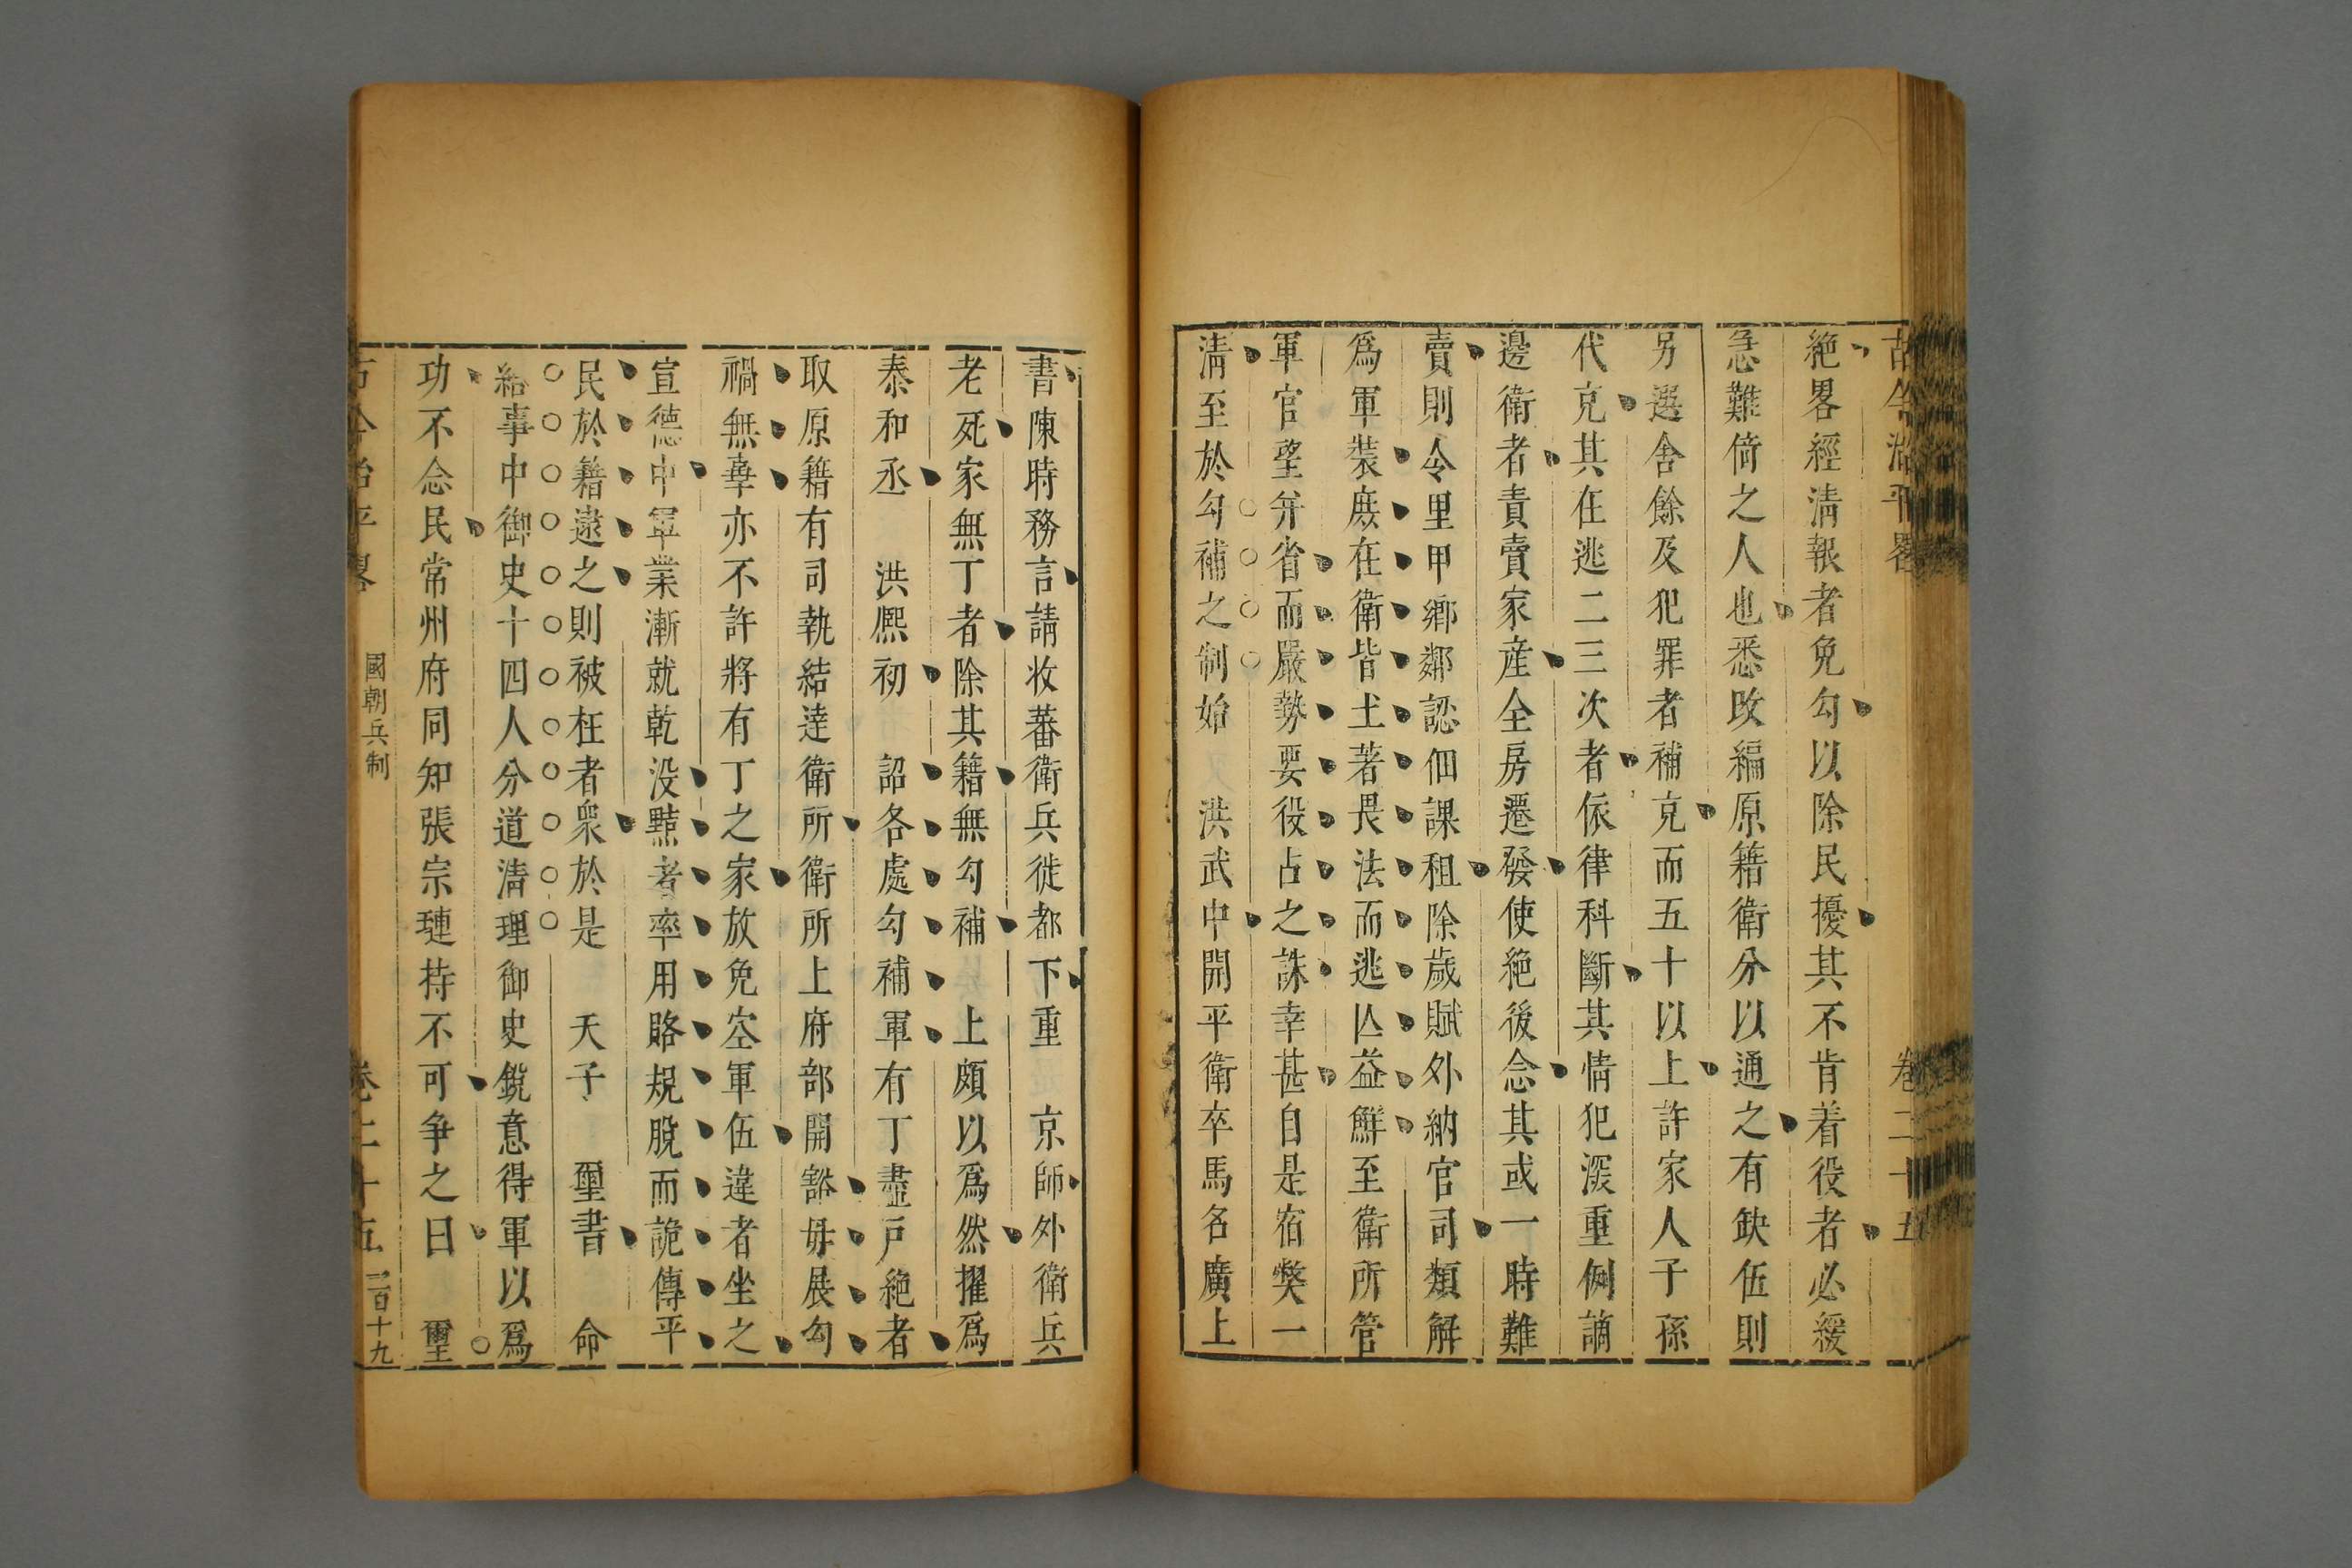 古今治平畧 卷二十五
絶畧經淸報者免勾以除民擾其不肯着役者必緩
急難倚之人也悉改編原籍衛分以通之有缺伍則
另選舍餘及犯罪者補充而五十以上許家人子孫
代充其在逃二三次者依律科斷其情犯深重例謫
邊衛者責賣家産全房遷發使絶後念其或一時難
賣則令里甲鄉鄰認佃課租除歲賦外納官司類解
爲軍裝庶在衛皆土著畏法而逃亾益鮮至衛所管
軍官塋弁省而嚴勢要役占之誅幸甚自是宿獘一
淸至於勾補之制始 洪武中開平衛卒馬名廣上
書陳時務言請收蕃衛兵徙都下重 京師外衛兵
老死家無丁者除其籍無勾補 上頗以爲然擢爲
泰和丞 洪熈初 詔各處勾補軍有丁盡戸絶者
取原籍有司執結逹衛所衛所上府部開豁毋展勾
禍無辜亦不許將有丁之家放免空軍伍違者坐之
宣德中軍業漸就乾没黠者率用賂規脫而詭傳平
民於籍逮之則被枉者衆於是 天子 璽書 命
給事中御史十四人分道清理御史銳意得軍以爲
功不念民常州府同知張宗璉持不可争之曰 璽
古今治平畧 國朝兵制 卷二十五 二百十九